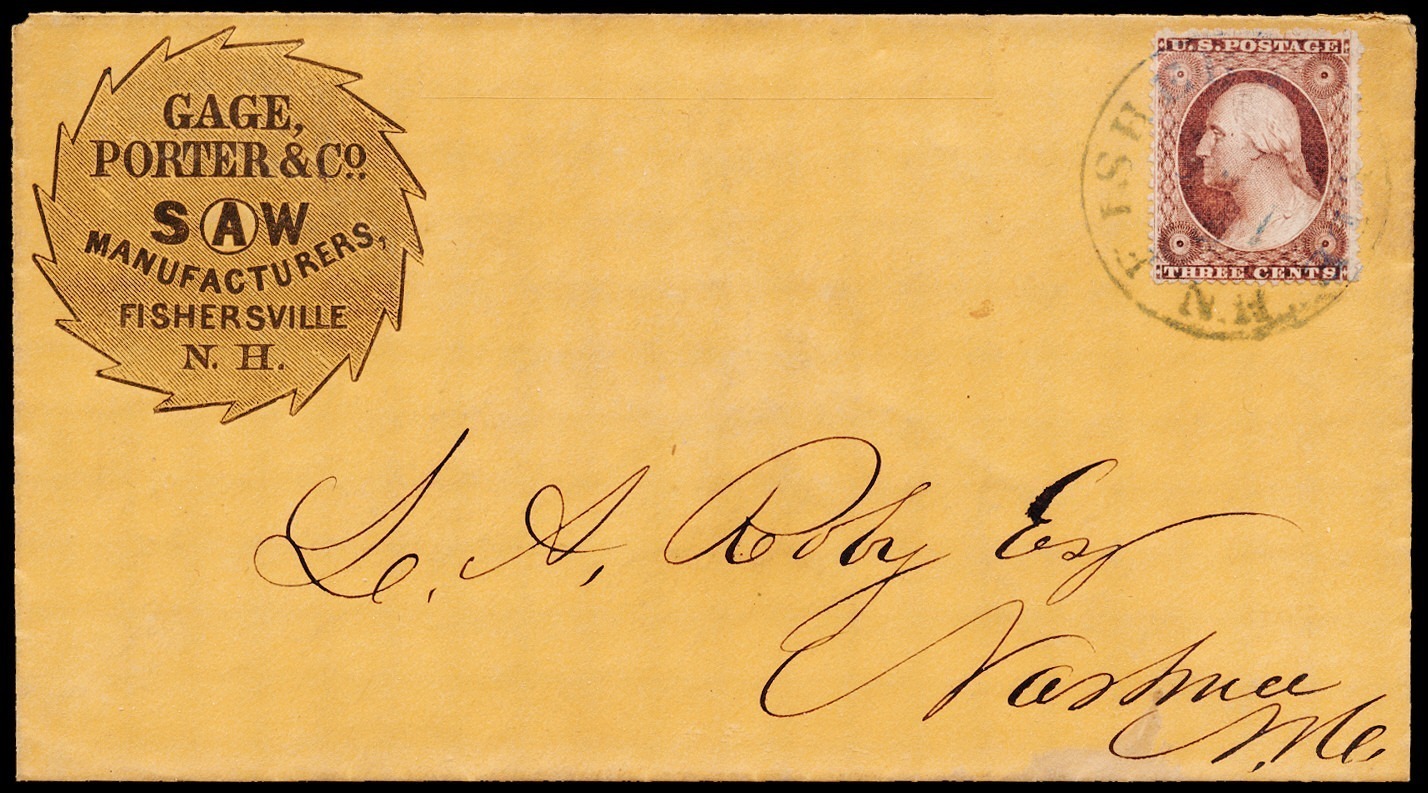 GAGE,
PORTER & Co.
SAW
MANUFACTURERS,
FISHERSVILLE
N. H.
U.S. POSTAGE
THREE CENTS
FISH
N.H.
L. A. Roby Esq
Nashua
N. H.